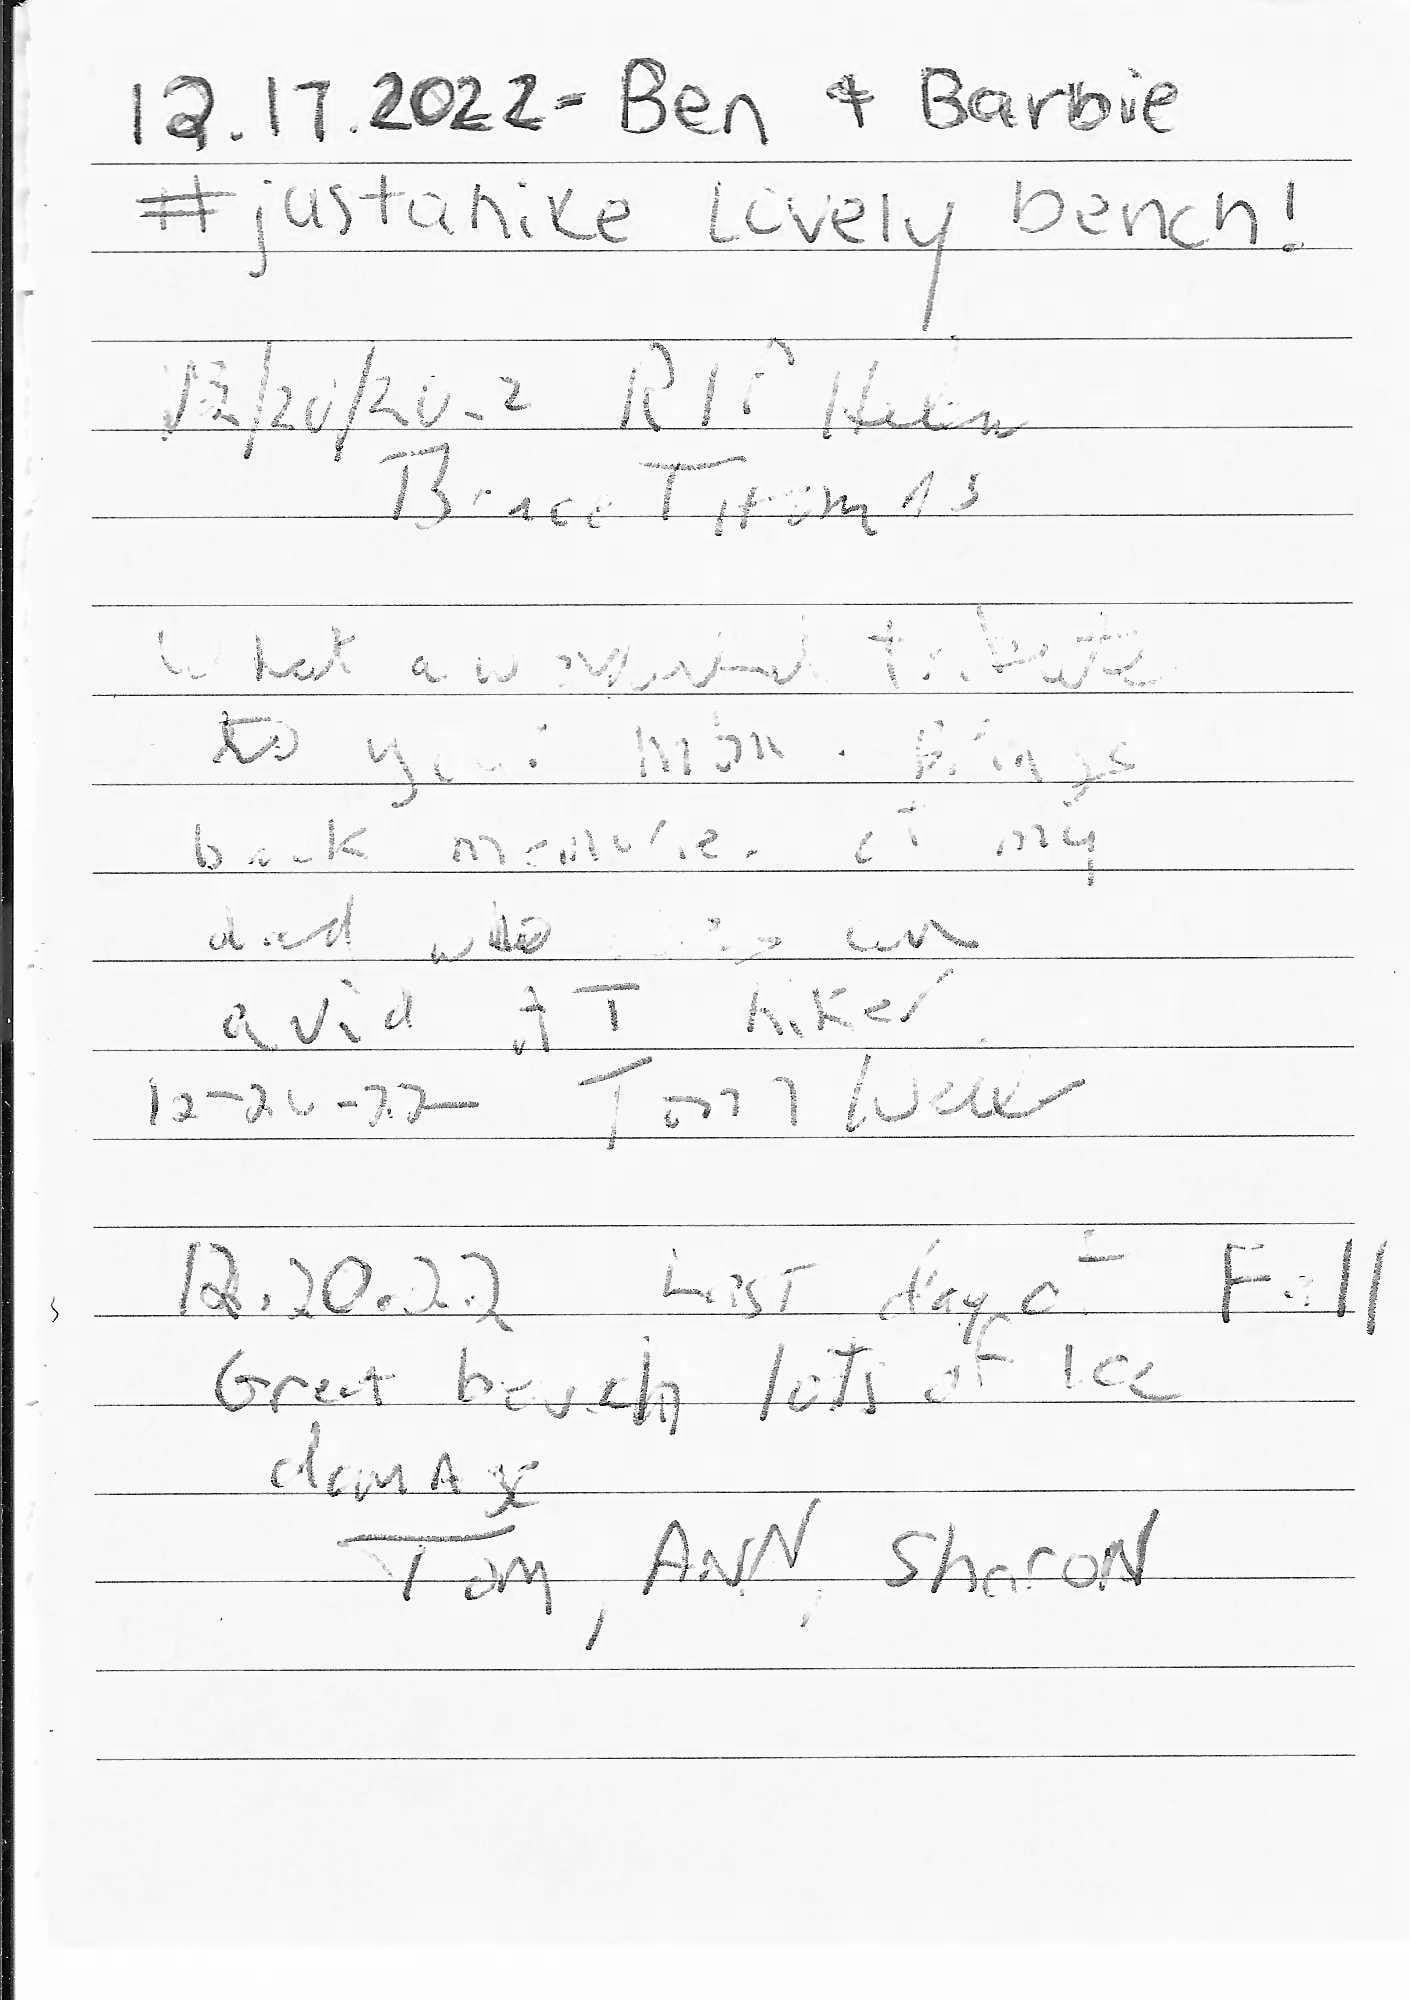 12.17.2022 - Ben & Barbie
#justahike Lovely bench!
12/20/2022 RIP Helen
Bruce Thomas
What a wonderful tribute
to your mom. Brings
back memories of my
dad who was an
avid AT hiker
12-20-22 Tom
12.20.22 Last day of Fall
Great bench lots of Ice
damage
Tom, ANN, SharoN